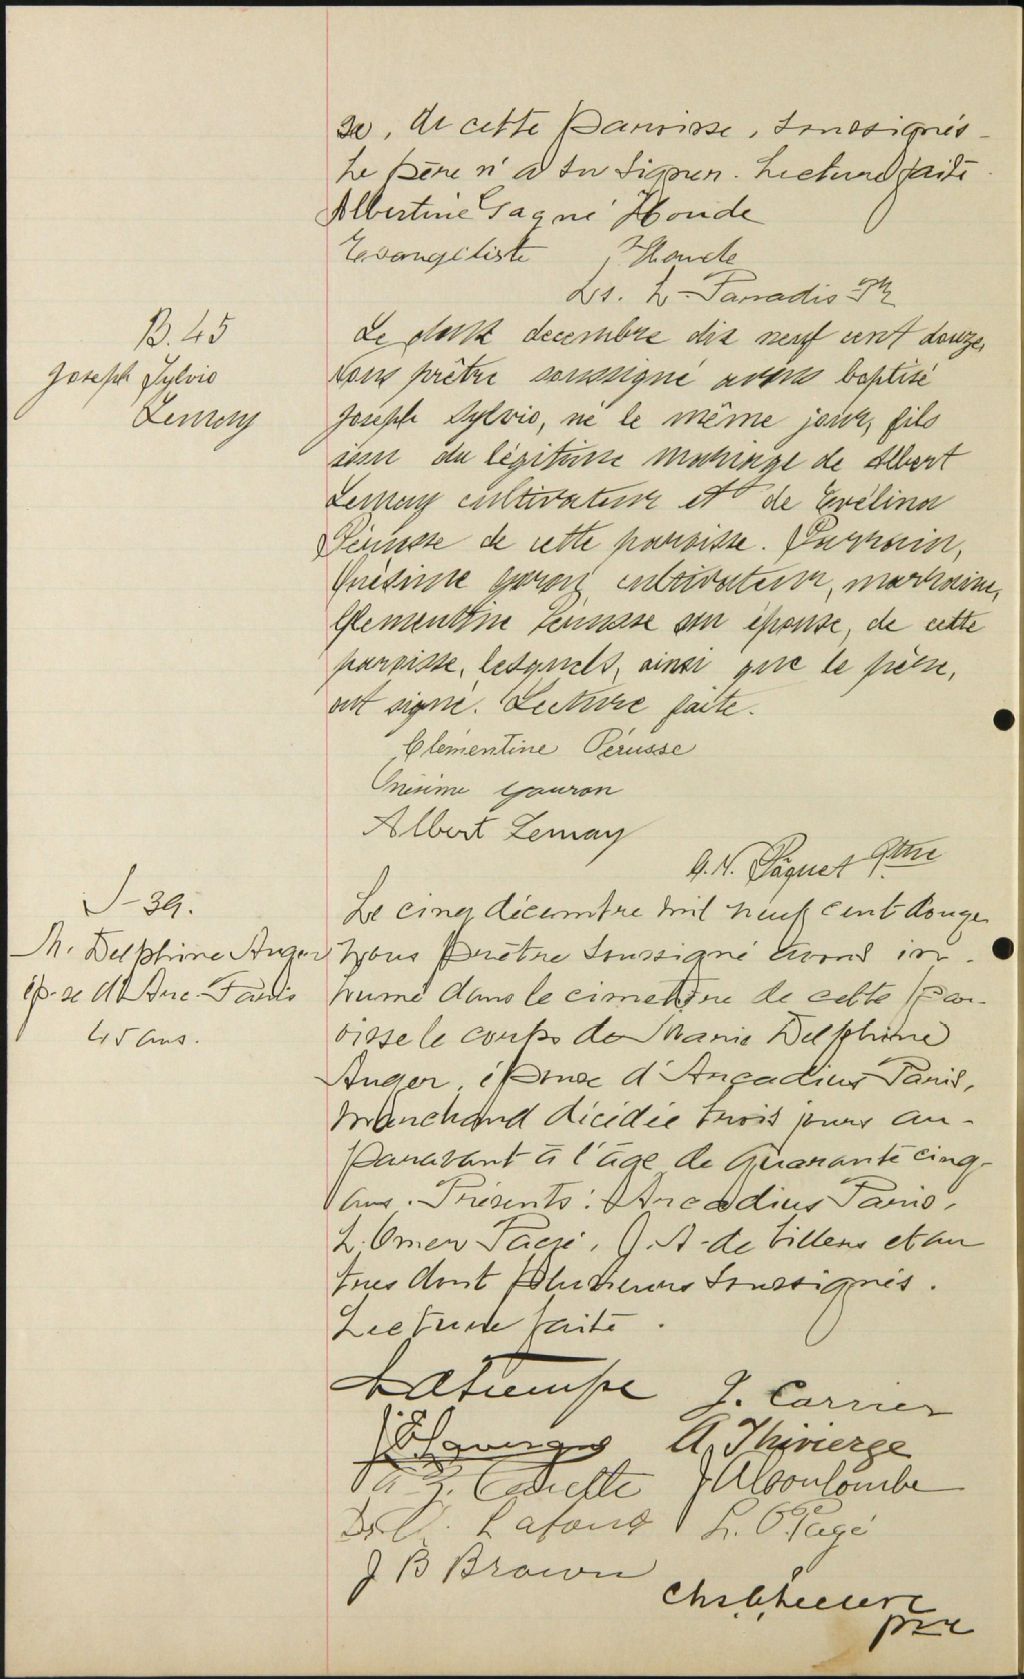 se, de cette paroisse, soussignés.
Le père n'a su signer. Lecture faite.
Albertine Gagné Houde
Evangéliste Houde
Ls. L. Parradis Ptr
B. 45
Joseph Sylvio
Lemay
Le deux decembre dix neuf cent douze,
nous prêtre soussigné avons baptisé
Joseph Sylvio, né le même jour, fils
issu du légitime mariage de Albert
Lemay cultivateur et de Evélina
Pérusse de cette paroisse. Parrain,
Onésime garon, cultivateur, marraine,
Clementine Pérusse son épouse, de cette
paroisse, lesquels, ainsi que le père,
ont signé. Lecture faite.
Clémentine Pérusse
Onésime gauron
Albert Lemay
Pâquet Ptre
S-39.
M. Delphine Auger
ép-se d'Arc. Paris
45 ans.
Le cinq décembre mil neuf cent douze
nous prêtre soussigné avons in-
humé dans le cimetière de cette par-
oisse le corps de Marie Delphine
Auger, épouse d'Arcadius Paris,
marchand décédée trois jours au-
paravant à l'âge de quarante cinq
ans. Présents: Arcadius Paris,
L. Omer Pagé, J. A. de Villers et au
tres dont plusieurs soussignés.
Lecture faite.
J. Carrier
J. E. Lavergne A Thivierge
J A Coulombe
Lafond L. O Pagé
J B Brown
ptre